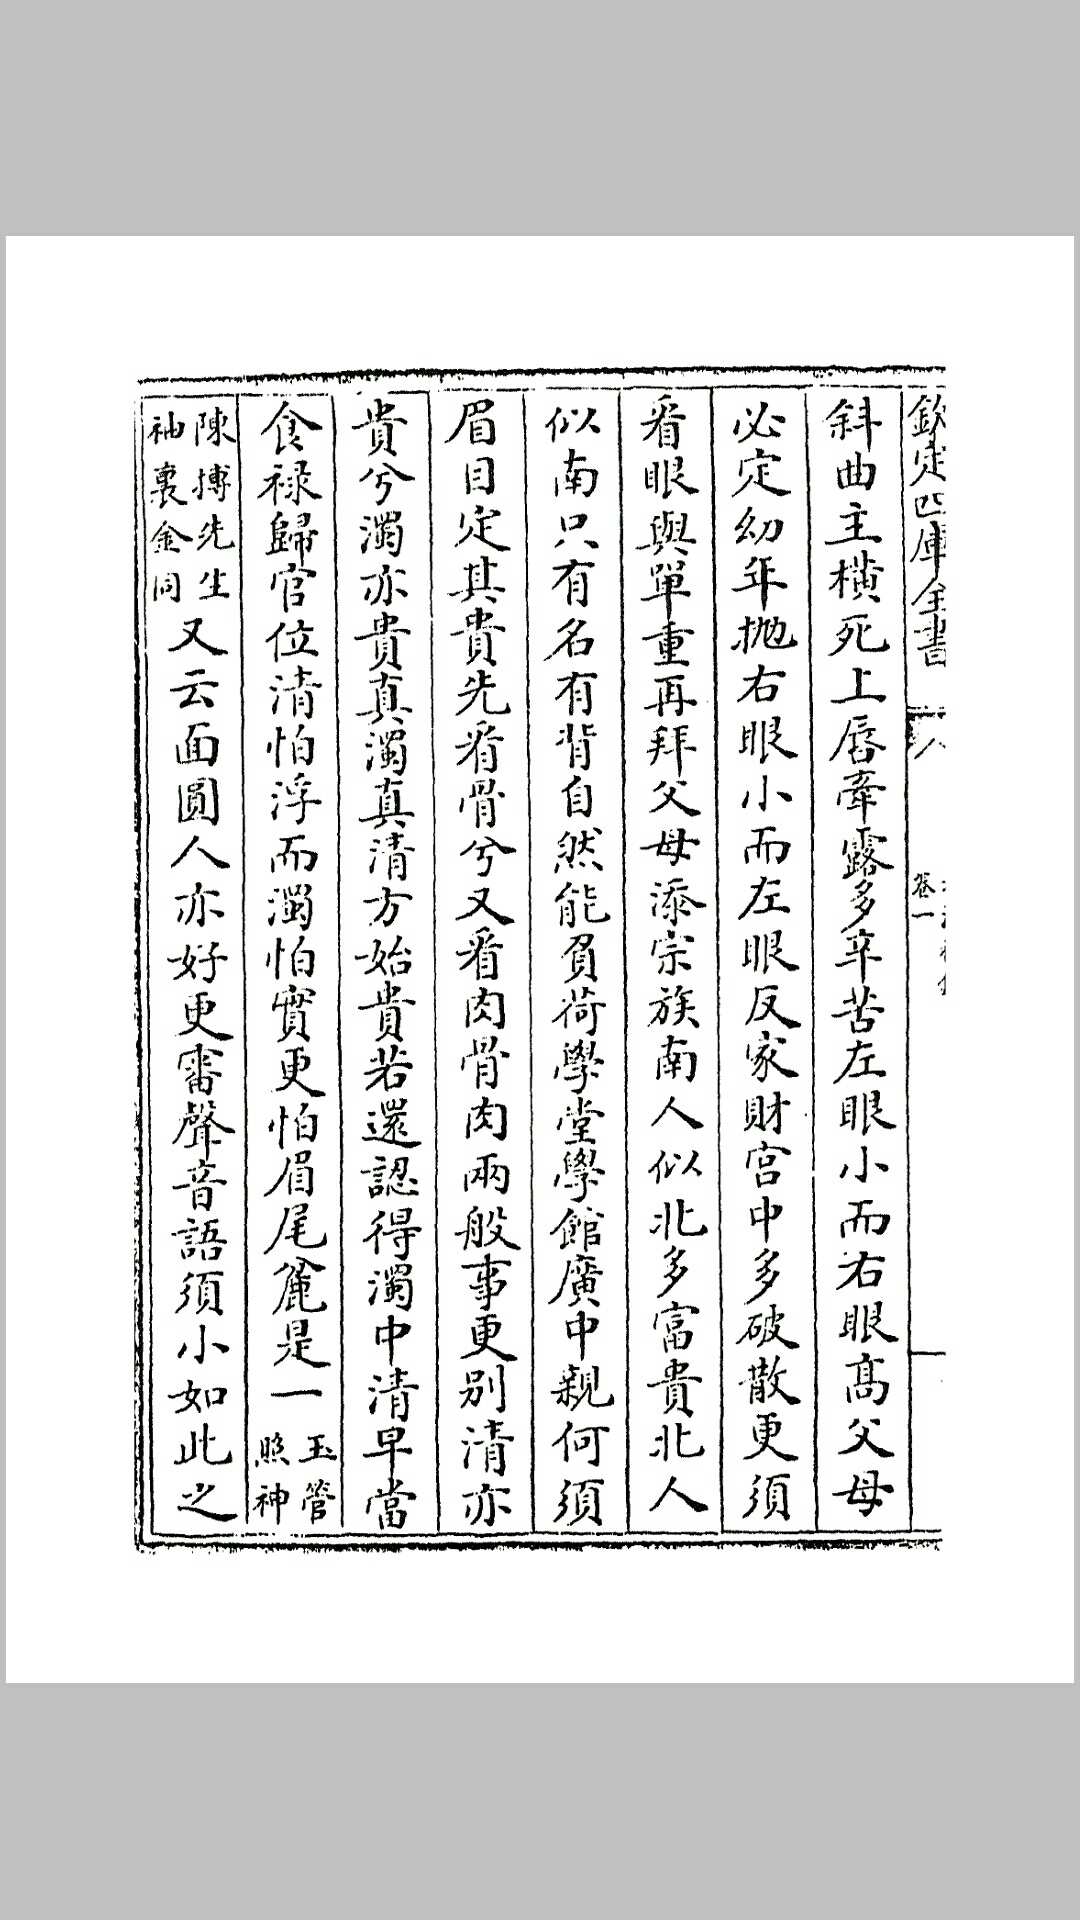 欽定四庫全書
卷一
斜曲主橫死上唇牽露多辛苦左眼小而右眼髙父母
必定幼年抛右眼小而左眼反家財宫中多破散更須
㸔眼與單重再拜父母添宗族南人似北多富貴北人
似南只有名有背自然能負荷學堂學館廣中親何須
眉目定其貴先㸔骨兮又㸔肉骨肉兩般事更别清亦
貴兮濁亦貴真濁真清方始貴若還認得濁中清早當
食禄歸官位清怕浮而濁怕實更怕眉尾麄是一玉管
照神
陳摶先生
袖裏金同又云面圓人亦好更審聲音語須小如此之